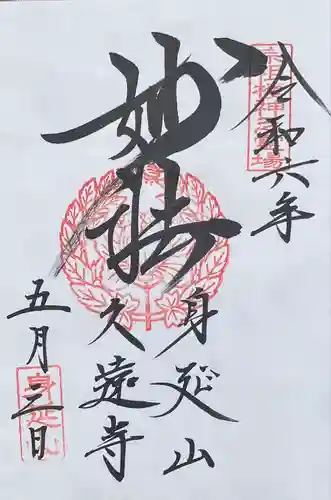 令和六年
妙法
身延山
久遠寺
五月三日
身延山